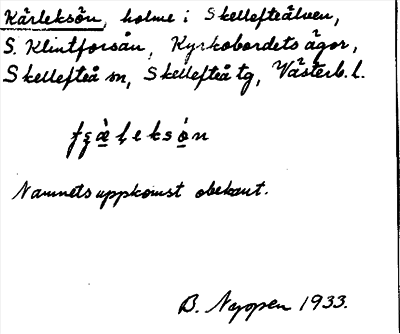 Kärleksön, holme i Skellefteälven,
S. Klintforsån, Kyrkobordets ägor,
Skellefteå sn, Skellefteå tg, Västerb. l.
Namnets uppkomst obekant.
B. 1933.